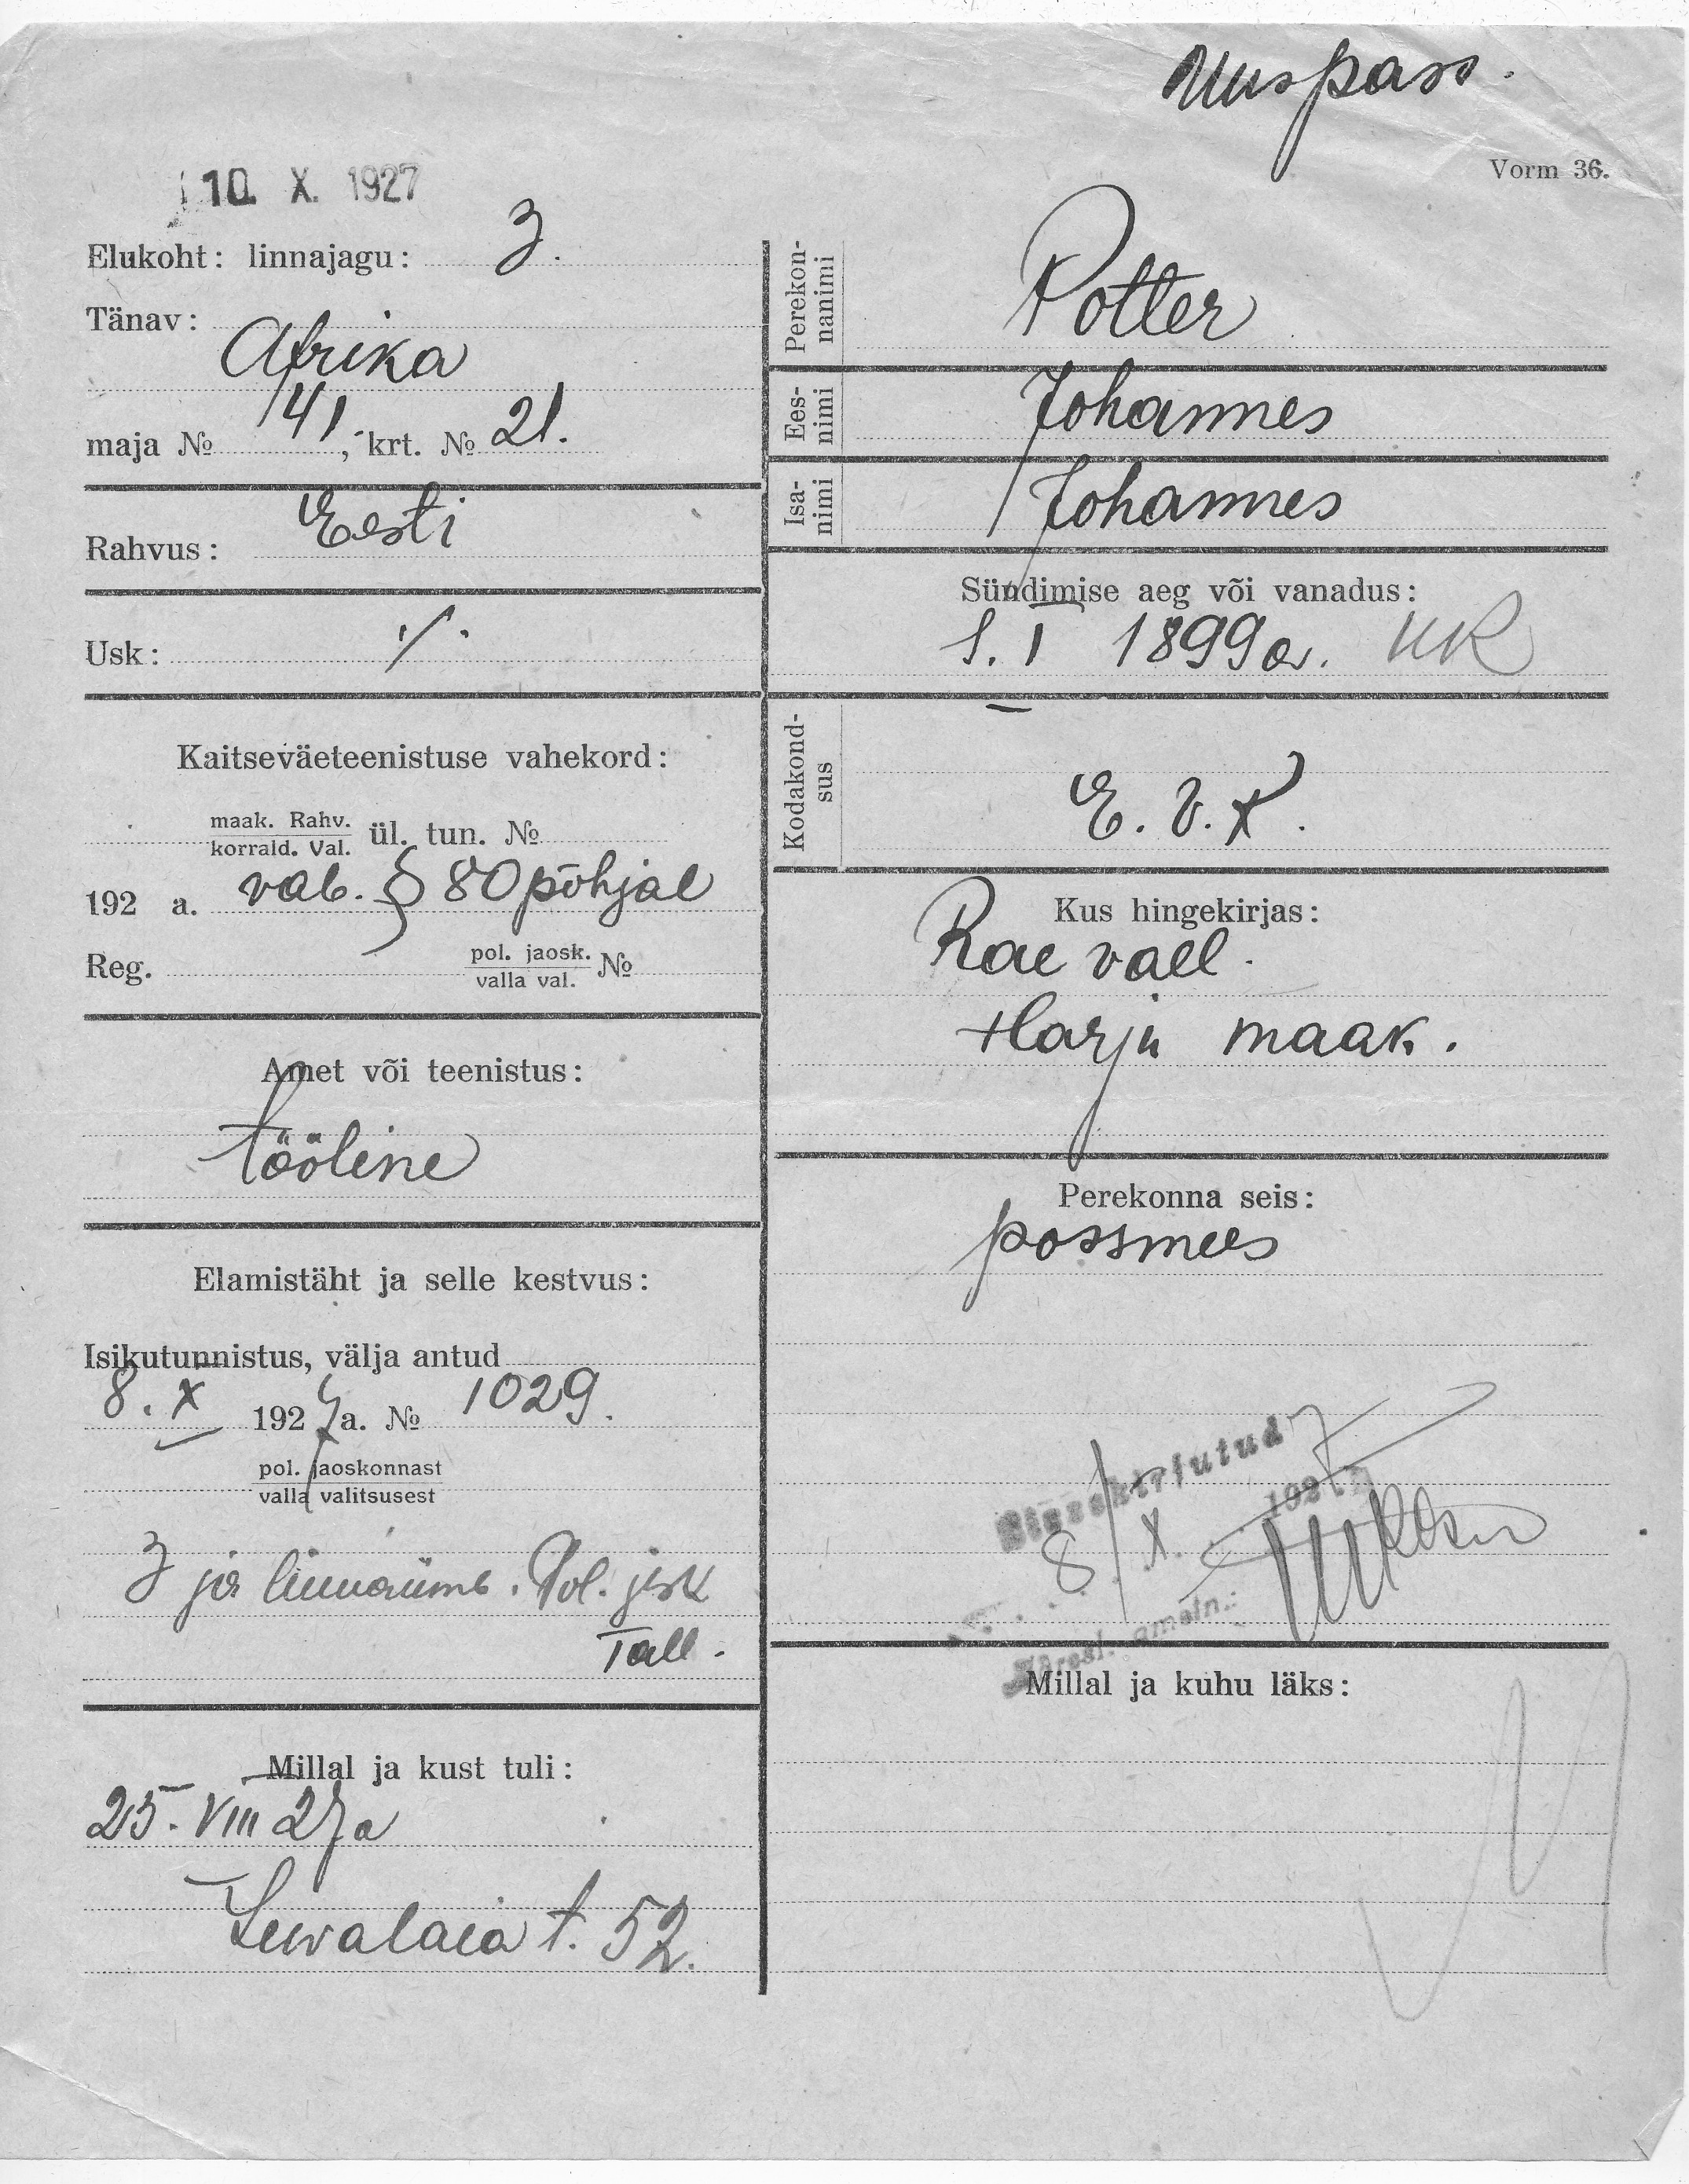 Uus pass.
Vorm 36.
10. X. 1927
Elukoht: linnajagu: 3.
Tänav:
Afrika
maja № 141, krt. № 21.
Rahvus: Eesti
Usk: ./.
Kaitseväeteenistuse vahekord:
maak. Rahv.
korrald. Val. ül. tun. №
192 a. vab. § 80 põhjal
Reg. pol. jaosk.
valla val. №
Amet või teenistus:
tööline
Elamistäht ja selle kestvus:
Isikutunnistus, välja antud
8. X 1927 a. № 1029.
pol. jaoskonnast
valla valitsusest
3 ja linnaümb. Pol. jsk
Tall.
Millal ja kust tuli:
25. VIII 27 a
Liivalaia t. 52.
Perekon-
nanimi
Potter
Ees-
nimi
Johannes
Isa-
nimi
Johannes
Sündimise aeg või vanadus:
1. I 1899 a. UK
Kodakond-
sus
E. V. K.
Kus hingekirjas:
Rae vall.
Harju maak.
Perekonna seis:
poissmees
Sissekirjutud
8/X. 1927
ametn.:
Millal ja kuhu läks: